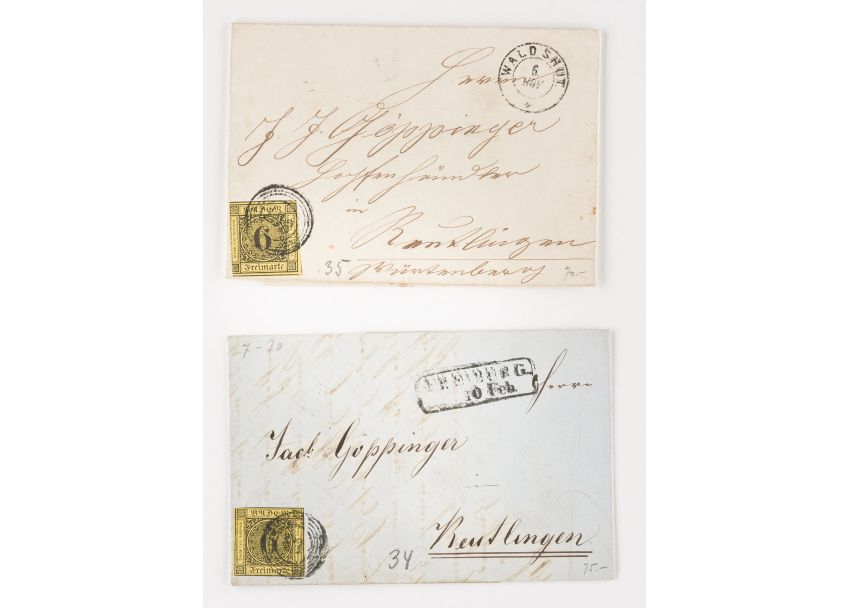 WALDSHUT
5
NOV
Herrn
J. J. Göppinger
Hopfenhändler
in
Reutlingen
Würtenberg
BADEN
6
Freimarke
35
70.-
7-30
FREIBURG.
10 Feb.
Herrn
Jack Göppinger
in
Reutlingen
BADEN
6
Freimarke
34
75.-